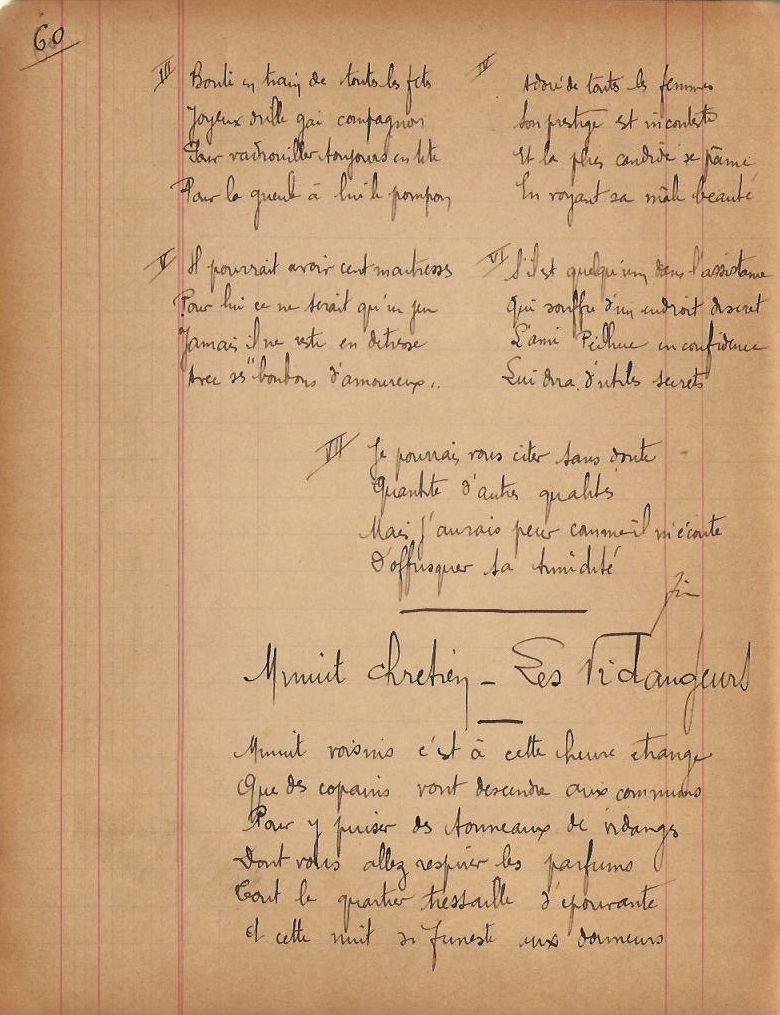 60
III Bouti en train de toutes les fets
Joyeux drille gai compagnon
Pour vadrouiller toujours en tête
Pour la gueule à lui le pompon
IV Adoré de toutes les femmes
Son prestige est incontesté
Et la plus candide se pâme
En voyant sa mâle beauté
V Il pourrait avoir cent maitresses
Pour lui ce ne serait qu'un jeu
Jamais il ne reste en detresse
Avec ses "bonbons d'amoureux"..
VI S'il est quelqu'un dans l'assistance
Qui souffre d'un endroit discret
L'ami en confidence
Lui dira d'utiles secrets
VII Je pourrais vous citer sans doute
Quantité d'autres qualités
Mais j'aurais peur comme il m'écoute
D'offusquer sa timidité
Fin
Minuit Chretien - Les Vidangeurs
Minuit voisins c'est à cette heure etrange
Que des copains vont descendre aux communs
Pour y puiser des tonneaux de vidanges
Dont vous allez respirer les parfums
Tout le quartier tressaille d'épouvante
Et cette nuit si funeste aux dormeurs